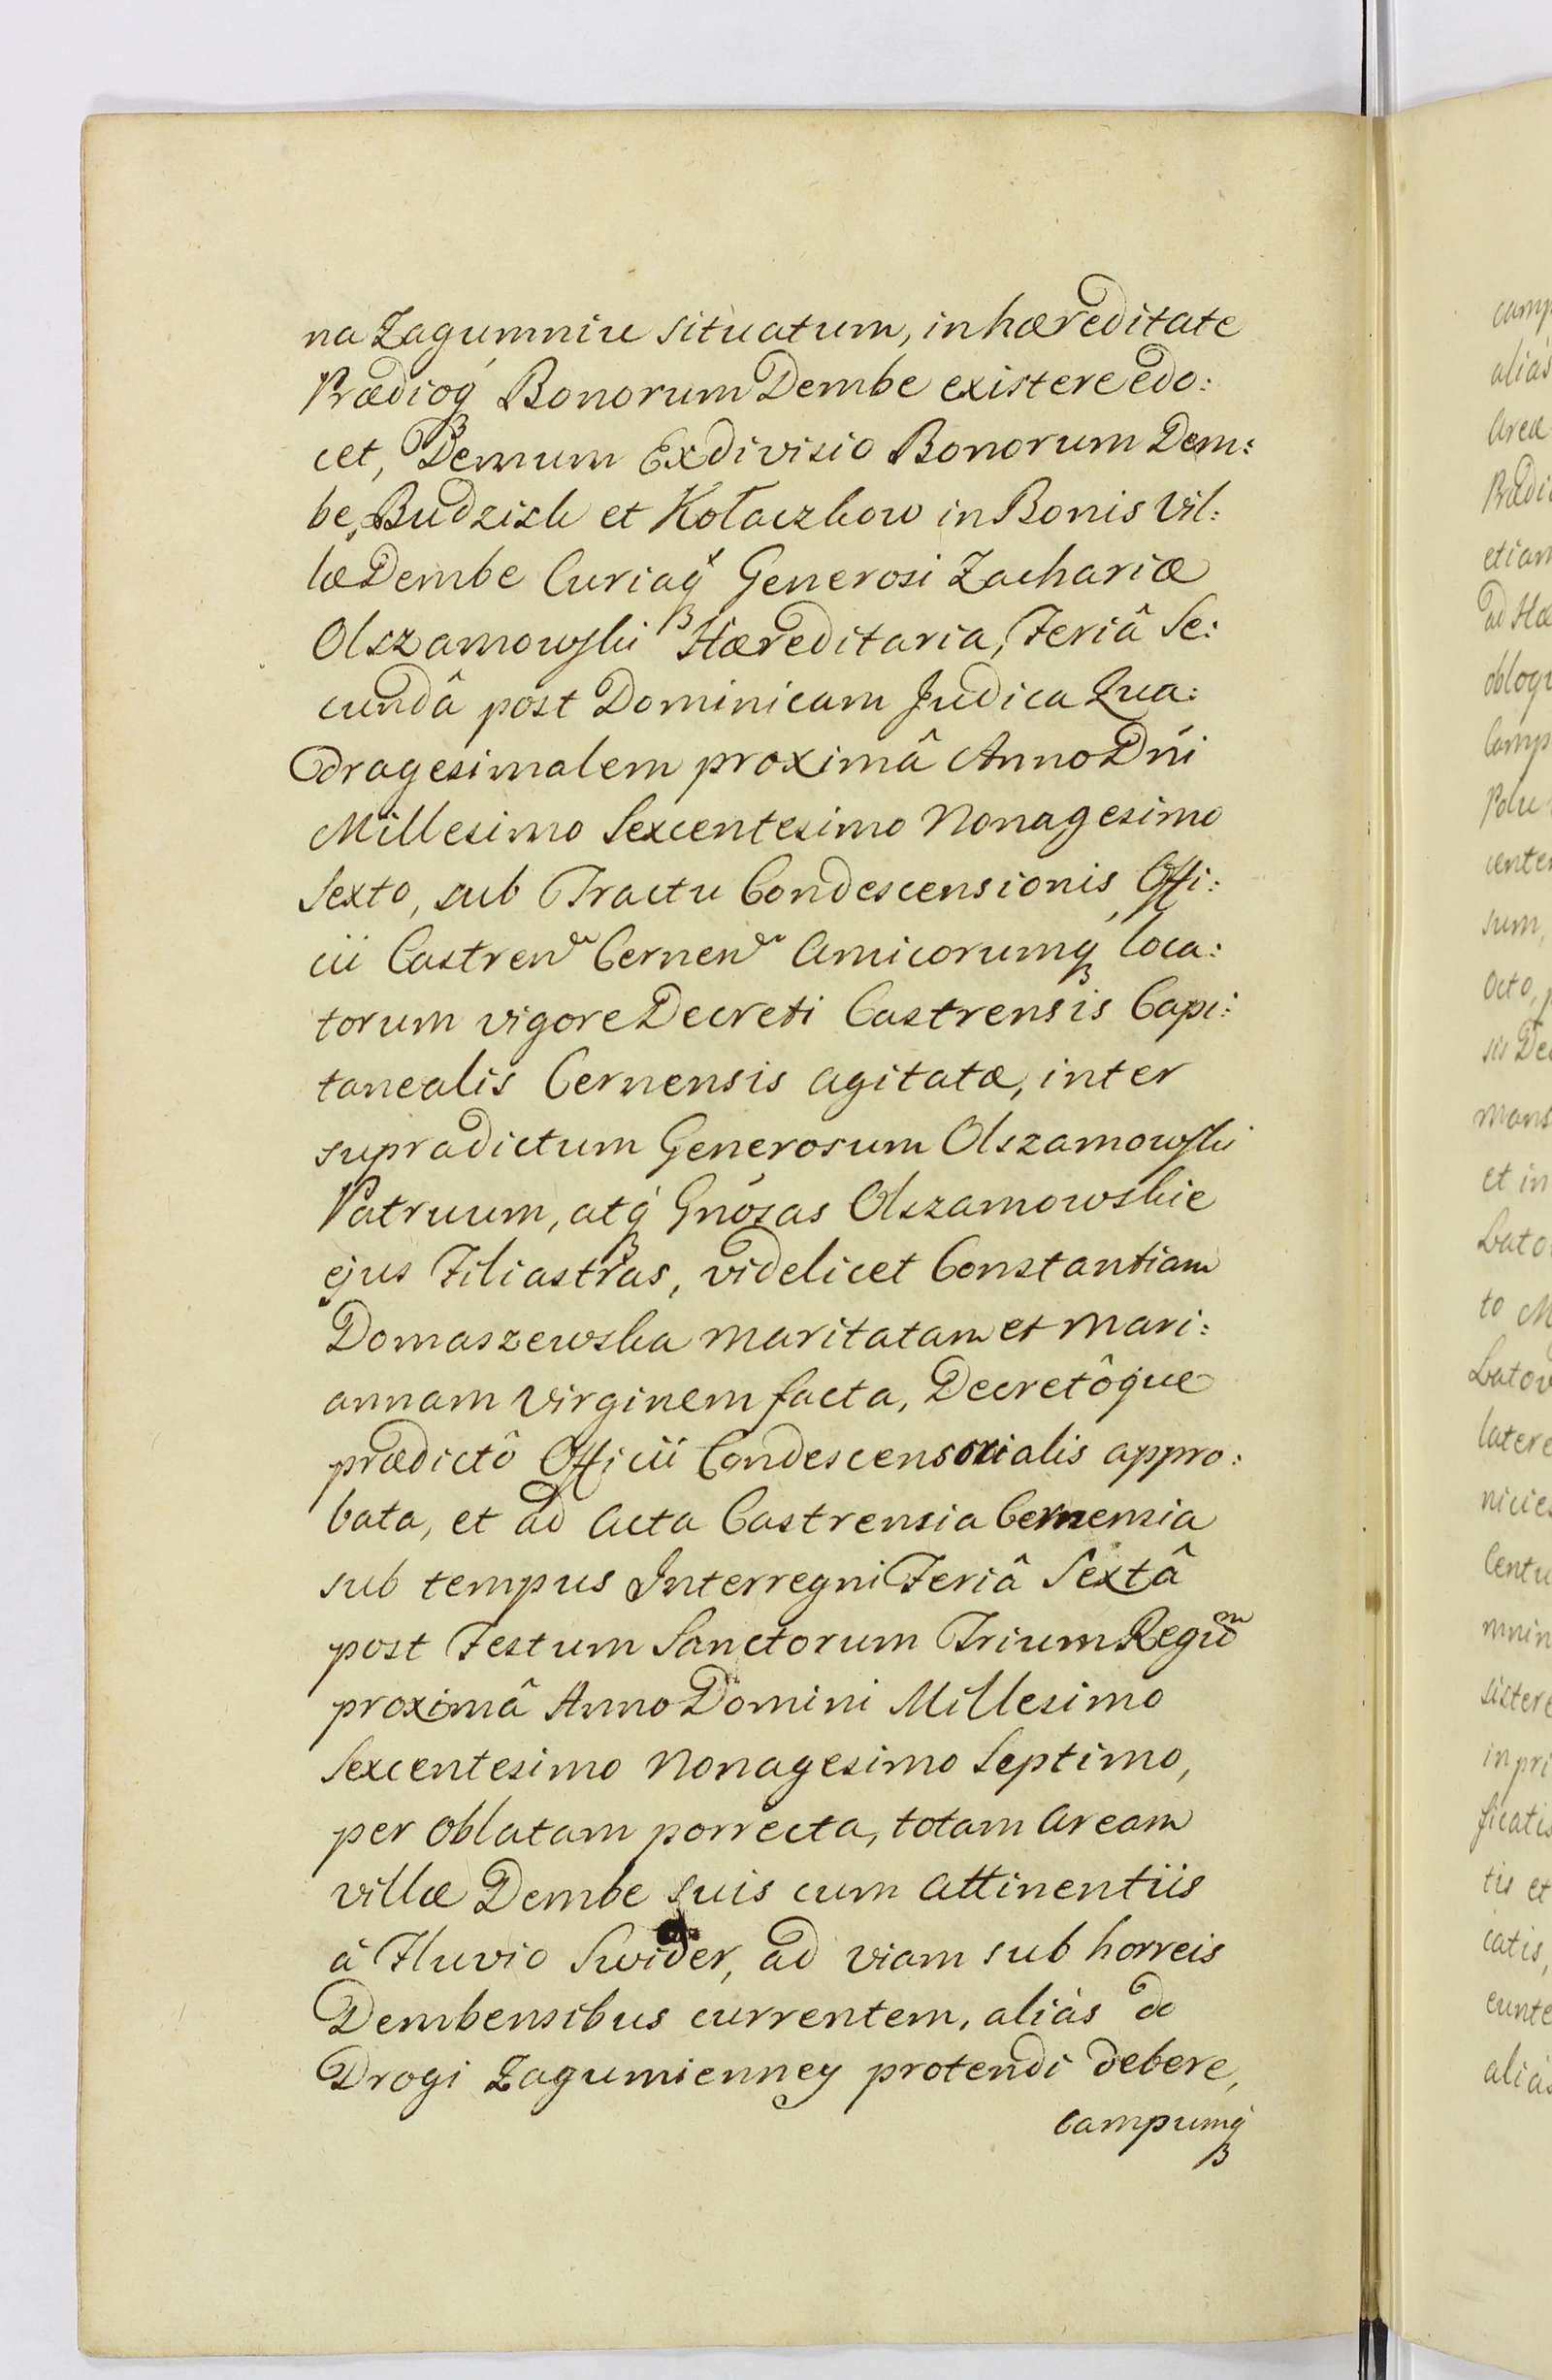 na Zagumniu situatum, in hæreditate
Prædioq́ꝫ Bonorum Dembe existere edo:
cet, Demum Exdivisio Bonorum Dem:
be, Budzisk et Kołaczkow in Bonis Vil:
læ Dembe Curiaq́ꝫ Generosi Zachariæ
Olszamowski Hæreditaria, Feriâ Se:
cundâ post Dominicam Judica Qua:
dragesimalem proximâ Anno Dńi
Millesimo Sexcentesimo Nonagesimo
Sexto, sub Tractu Condescensionis, Offi:
cii Castren Cernen Amicorumq́ꝫ loca:
torum vigore Decreti Castrensis Capi:
tanealis Cernensis agitatæ, inter
supradictum Generosum Olszamowski
Patruum, atq́ꝫ Gnosas Olszamowskie
ejus Filiastras, videlicet Constantiam
Domaszewska maritatam et Mari:
annam Virginem facta, Decretôque
prædictô Officii Condescensorialis appro:
bata, et ad Acta Castrensia Cernensia
sub tempus Interregni Feriâ Sextâ
post Festum Sanctorum Trium Regum
proximâ Anno Domini Millesimo
Sexcentesimo Nonagesimo Septimo,
per Oblatam porrecta, totam Aream
villæ Dembe suis cum Attinentiis
à Fluvio Swider, ad viam sub horreis
Dembensibus currentem, aliàs do
Drogi Zagumienney protendi debere,
campumq́ꝫ